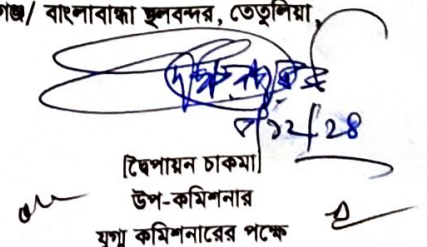 / বাংলাবান্ধা স্থলবন্দর, তেতুলিয়া,
[দ্বৈপায়ন চাকমা]
উপ-কমিশনার
যুগ্ম কমিশনারের পক্ষে